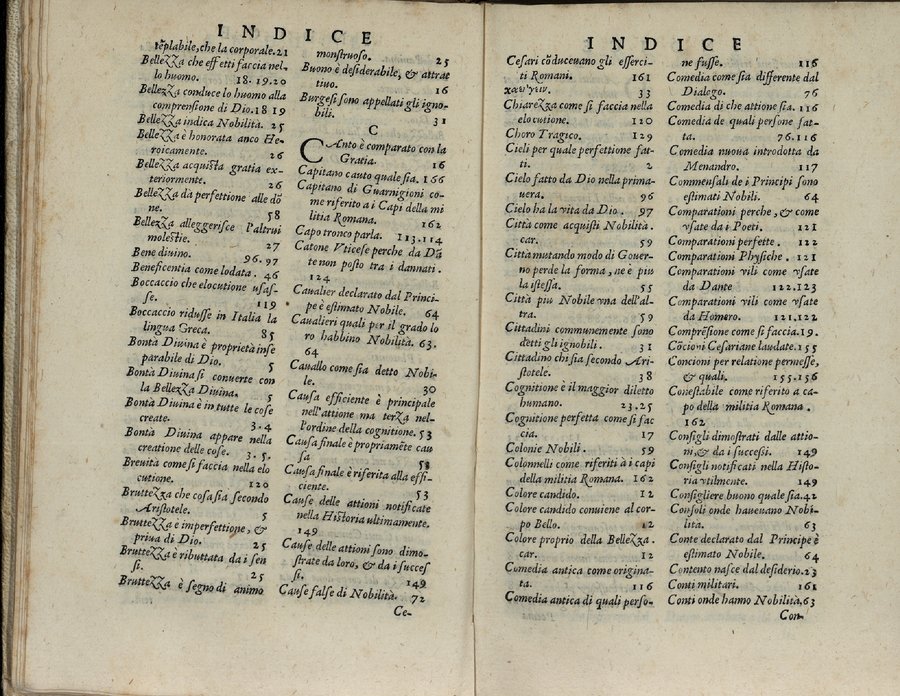 INDICE
tẽplabile, che la corporale. 21
Bellezza che effetti faccia nel-
lo huomo. 18. 19. 20
Bellezza conduce lo huomo alla
comprensione di Dio. 18 19
Bellezza indica Nobilità. 25
Bellezza è honorata anco He-
roicamente. 26
Bellezza acquista gratia ex-
teriormente. 26
Bellezza dà perfettione alle dõ
ne. 58
Bellezza alleggerisce l'altrui
molestie. 27
Bene diuino. 96. 97
Beneficentia come lodata. 46
Boccaccio che elocutione usas-
se. 119
Boccaccio ridusse in Italia la
lingua Greca. 85
Bontà Diuina è proprietà inse
parabile di Dio. 5
Bontà Diuina si conuerte con
la Bellezza Diuina. 5
Bontà Diuina è in tutte le cose
create. 3. 4
Bontà Diuina appare nella
creatione delle cose. 3. 5.
Breuità come si faccia nella elo
cutione. 120
Bruttezza che cosa sia secondo
Aristotele. 5
Bruttezza è imperfettione, &
priua di Dio. 25
Bruttezza è ributtata da i sen
si. 25
Bruttezza è segno di animo
monstruoso. 25
Buono è desiderabile, & attrat
tiuo. 16
Burgesi sono appellati gli igno-
bili. 31
C
CAnto è comparato con la
Gratia. 16
Capitano cauto quale sia. 166
Capitano di Guarnigioni co-
me riferito a i Capi della mi
litia Romana. 162
Capo tronco parla. 113. 114
Catone Vticese perche da Dã
te non posto tra i dannati.
124
Caualier declarato dal Princi-
pe è estimato Nobile. 64
Caualieri quali per il grado lo
ro habbino Nobilità. 63.
64
Cauallo come sia detto Nobi-
le. 30
Causa efficiente è principale
nell'attione ma terza nel-
l'ordine della cognitione. 53
Causa finale è propriamẽte cau
sa 58
Causa finale è riferita alla effi-
ciente. 53
Cause delle attioni notificate
nella Historia ultimamente.
149
Cause delle attioni sono dimo-
strate da loro, & da i succes
si. 149
Cause false di Nobilità. 72
Ce-
INDICE
Cesari cõduceuano gli esserci-
ti Romani. 161
33
Chiarezza come si faccia nella
elocutione. 120
Choro Tragico. 129
Cieli per quale perfettione fat-
ti. 2
Cielo fatto da Dio nella prima-
uera. 96
Cielo ha la vita da Dio. 97
Città come acquisti Nobilità.
car. 59
Città mutando modo di Gouer-
no perde la forma, ne è piu
la istessa. 55
Città più Nobile vna dell'al-
tra. 59
Cittadini communemente sono
detti gli ignobili. 31
Cittadino chi sia secondo Ari-
stotele. 38
Cognitione è il maggior diletto
humano. 23. 25
Cognitione perfetta come si fac
cia. 17
Colonie Nobili. 59
Colonnelli come riferiti à i capi
della militia Romana. 162
Colore candido. 12
Colore candido conuiene al cor-
po Bello. 12
Colore proprio della Bellezza.
car. 12
Comedia antica come origina-
ta. 116
Comedia antica di quali perso-
ne fusse. 116
Comedia come sia differente dal
Dialogo. 76
Comedia di che attione sia. 116
Comedia de quali persone fat-
ta. 76. 116
Comedia nuoua introdotta da
Menandro. 117
Commensali de i Principi sono
estimati Nobili. 64
Comparationi perche, & come
vsate da i Poeti. 121
Comparationi perfette. 122
Comparationi Physiche. 121
Comparationi vili come vsate
da Dante 122. 123
Comparationi vili come vsate
da Homero. 121. 122
Comprẽsione come si faccia. 19.
Cõcioni Cesariane laudate. 155
Concioni per relatione permesse,
& quali. 155. 156
Conestabile come riferito a ca-
po della militia Romana.
162
Consigli dimostrati dalle attio-
ni, & da i successi. 149
Consigli notificati nella Histo-
ria vtilmente. 149
Consigliere buono quale sia. 42
Consoli onde haueuano Nobi-
lità. 63
Conte declarato dal Principe è
estimato Nobile. 64
Contento nasce dal desiderio. 23
Conti militari. 161
Conti onde hanno Nobilità. 63
Con-